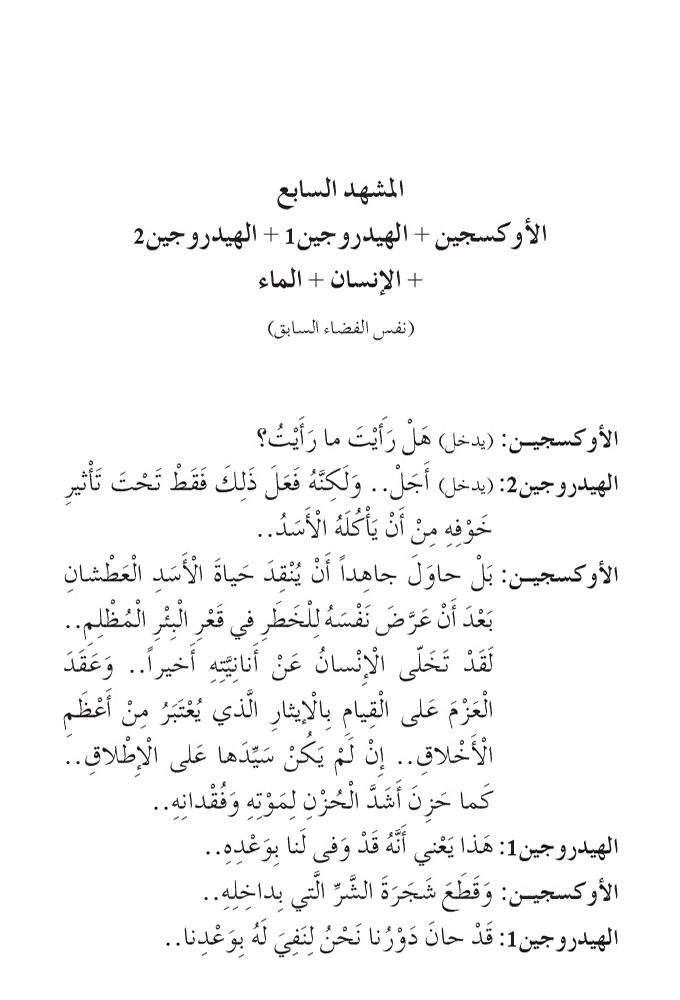 المشهد السابع
الأوكسجين + الهيدروجين1 + الهيدروجين2
+ الإنسان + الماء
(نفس الفضاء السابق)
الأوكسجيـن: (يدخل) هَلْ رَأَيْتَ ما رَأَيْتُ؟
الهيدروجين2: (يدخل) أَجَلْ.. وَلَكِنَّهُ فَعَلَ ذَلِكَ فَقَطْ تَحْتَ تَأْثيرِ
خَوْفِهِ مِنْ أَنْ يَأْكُلَهُ الْأَسَدُ..
الأوكسجيـن: بَلْ حاوَلَ جاهِداً أَنْ يُنْقِدَ حَياةَ الْأَسَدِ الْعَطْشانِ
بَعْدَ أَنْ عَرَّضَ نَفْسَهُ لِلْخَطَرِ في قَعْرِ الْبِئْرِ الْمُظْلِمِ..
لَقَدْ تَخَلّى الْإِنْسانُ عَنْ أَنانِيَّتِهِ أَخيراً.. وَعَقَدَ
الْعَزْمَ عَلى الْقِيامِ بِالْإيثارِ الَّذي يُعْتَبَرُ مِنْ أَعْظَمِ
الْأَخْلاقِ.. إِنْ لَمْ يَكُنْ سَيِّدَها عَلى الْإِطْلاقِ..
كَما حَزِنَ أَشَدَّ الْحُزْنِ لِمَوْتِهِ وَفُقْدانِهِ..
الهيدروجين1: هَذا يَعْني أَنَّهُ قَدْ وَفى لَنا بِوَعْدِهِ..
الأوكسجيـن: وَقَطَعَ شَجَرَةَ الشَّرِّ الَّتي بِداخِلِهِ..
الهيدروجين1: قَدْ حانَ دَوْرُنا نَحْنُ لِنَفِيَ لَهُ بِوَعْدِنا..